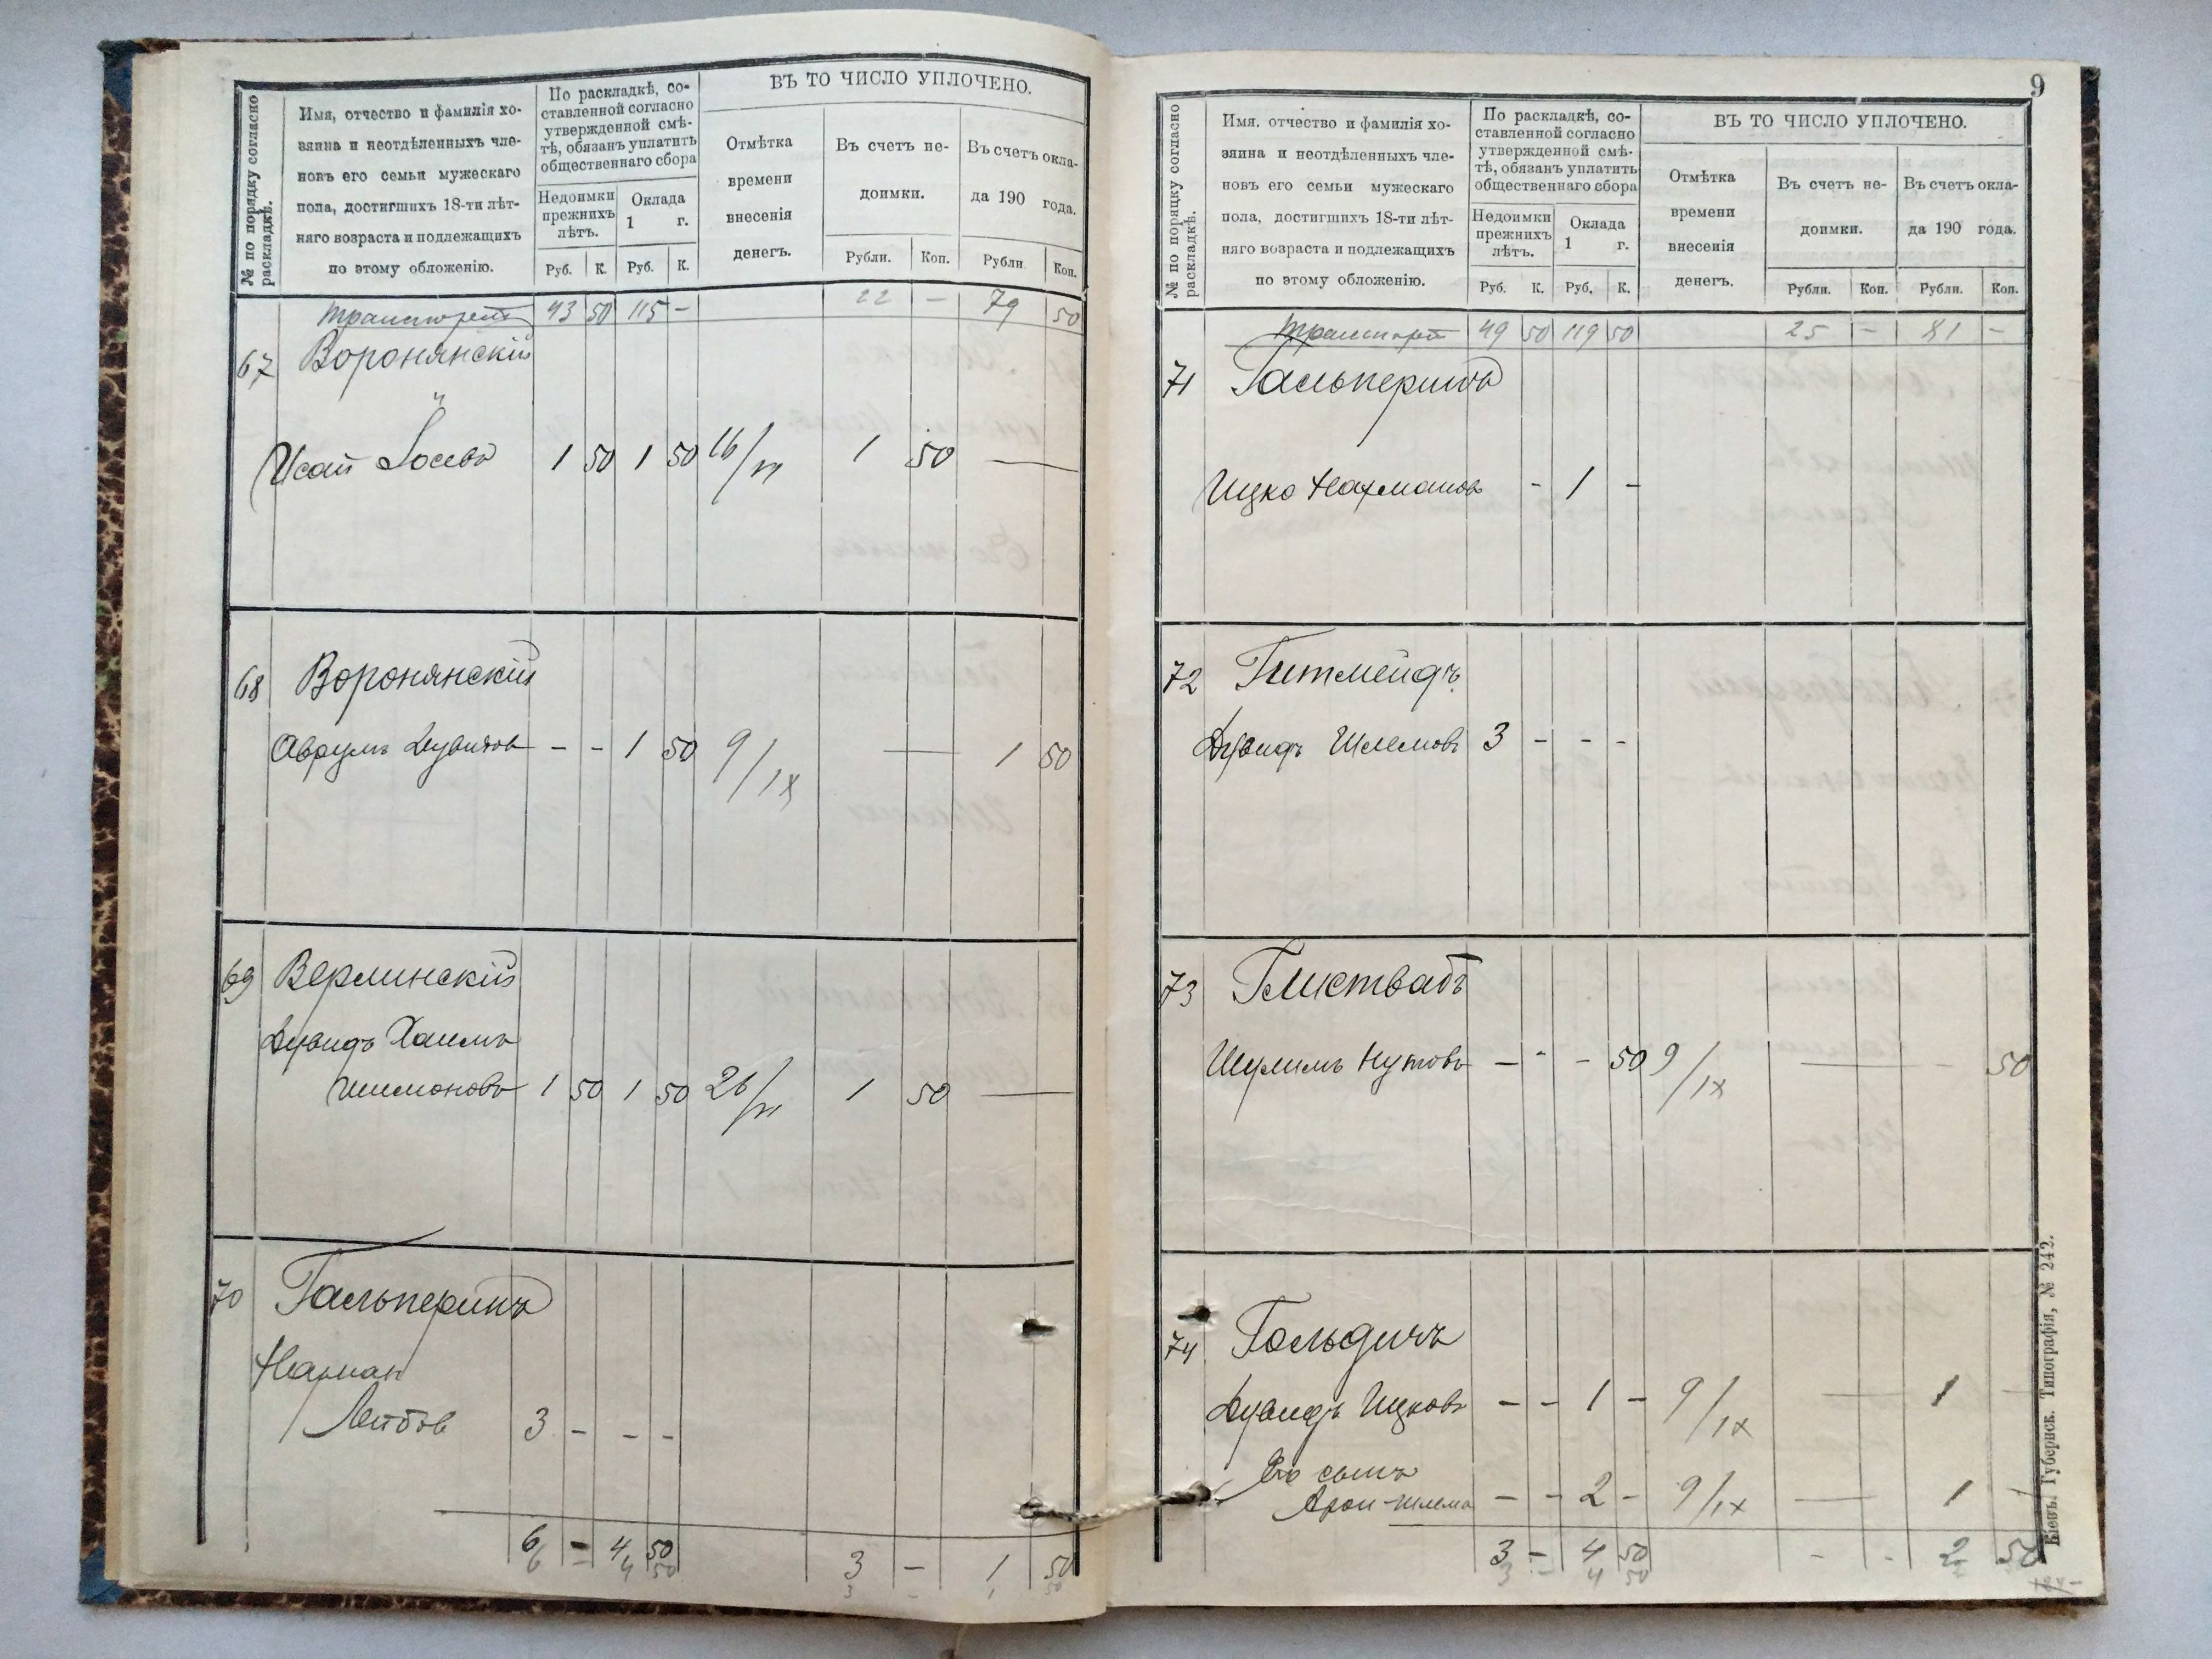 № по порядку согласно раскладкѣ.
Имя, отчество и фамилія хо-
зяина и неотдѣленныхъ чле-
новъ его семьи мужескаго
пола, достигшихъ 18-ти лѣт-
няго возраста и подлежащихъ
по этому обложенію.
По раскладкѣ, со-
ставленной согласно
утвержденной смѣ-
тѣ, обязанъ уплатить
общественнаго сбора
Недоимки прежнихъ лѣтъ.
Оклада 1 г.
Руб. К. Руб. К.
ВЪ ТО ЧИСЛО УПЛОЧЕНО.
Отмѣтка времени внесенія денегъ.
Въ счетъ не-
доимки.
Въ счетъ окла-
да 190 года.
Рубли. Коп. Рубли Коп.
Транспортъ 43 50 115 - 22 - 79 50
67 Воронянскій
Исай Іосевъ 1 50 1 50 16/VI 1 50 —
68 Воронянскій
Аврумъ Дувидов - - 1 50 9/IX — 1 50
69 Верлинскій
Дувидъ Хаимъ
Шимоновъ 1 50 1 50 26/VI 1 50 —
70 Гальперинъ
Нахман
Лейбов 3 - - -
6 - 4 50 3 - 1 50
6 - 4 50 3 - 1 50
9
№ по порядку согласно раскладкѣ.
Имя. отчество и фамилія хо-
зяина и неотдѣленныхъ чле-
новъ его семьи мужескаго
пола, достигшихъ 18-ти лѣт-
няго возраста и подлежащихъ
по этому обложенію.
По раскладкѣ, со-
ставленной согласно
утвержденной смѣ-
тѣ, обязанъ уплатить
общественнаго сбора
Недоимки прежнихъ лѣтъ.
Оклада 1 г.
Руб. К. Руб. К.
ВЪ ТО ЧИСЛО УПЛОЧЕНО.
Отмѣтка времени внесенія денегъ.
Въ счетъ не-
доимки.
Въ счетъ окла-
да 190 года.
Рубли. Коп. Рубли. Коп.
Транспортъ 49 50 119 50 25 - 81 -
71 Гальперинъ
Ицко Нахманов - 1 -
72 Гитмейдъ
Дувидъ Шлемовъ 3 - - -
73 Глистватъ
Шулимъ Нутовъ - - - 50 9/IX — - 50
74 Гольдичъ
Дувидъ Ицковъ - - 1 - 9/IX — 1
Его сынъ
Арон-Шлема - - 2 - 9/IX — 1
3 - 4 50 - - 2 50
3 - 4 50
Кіевъ. Губернск. Типографія, № 242.